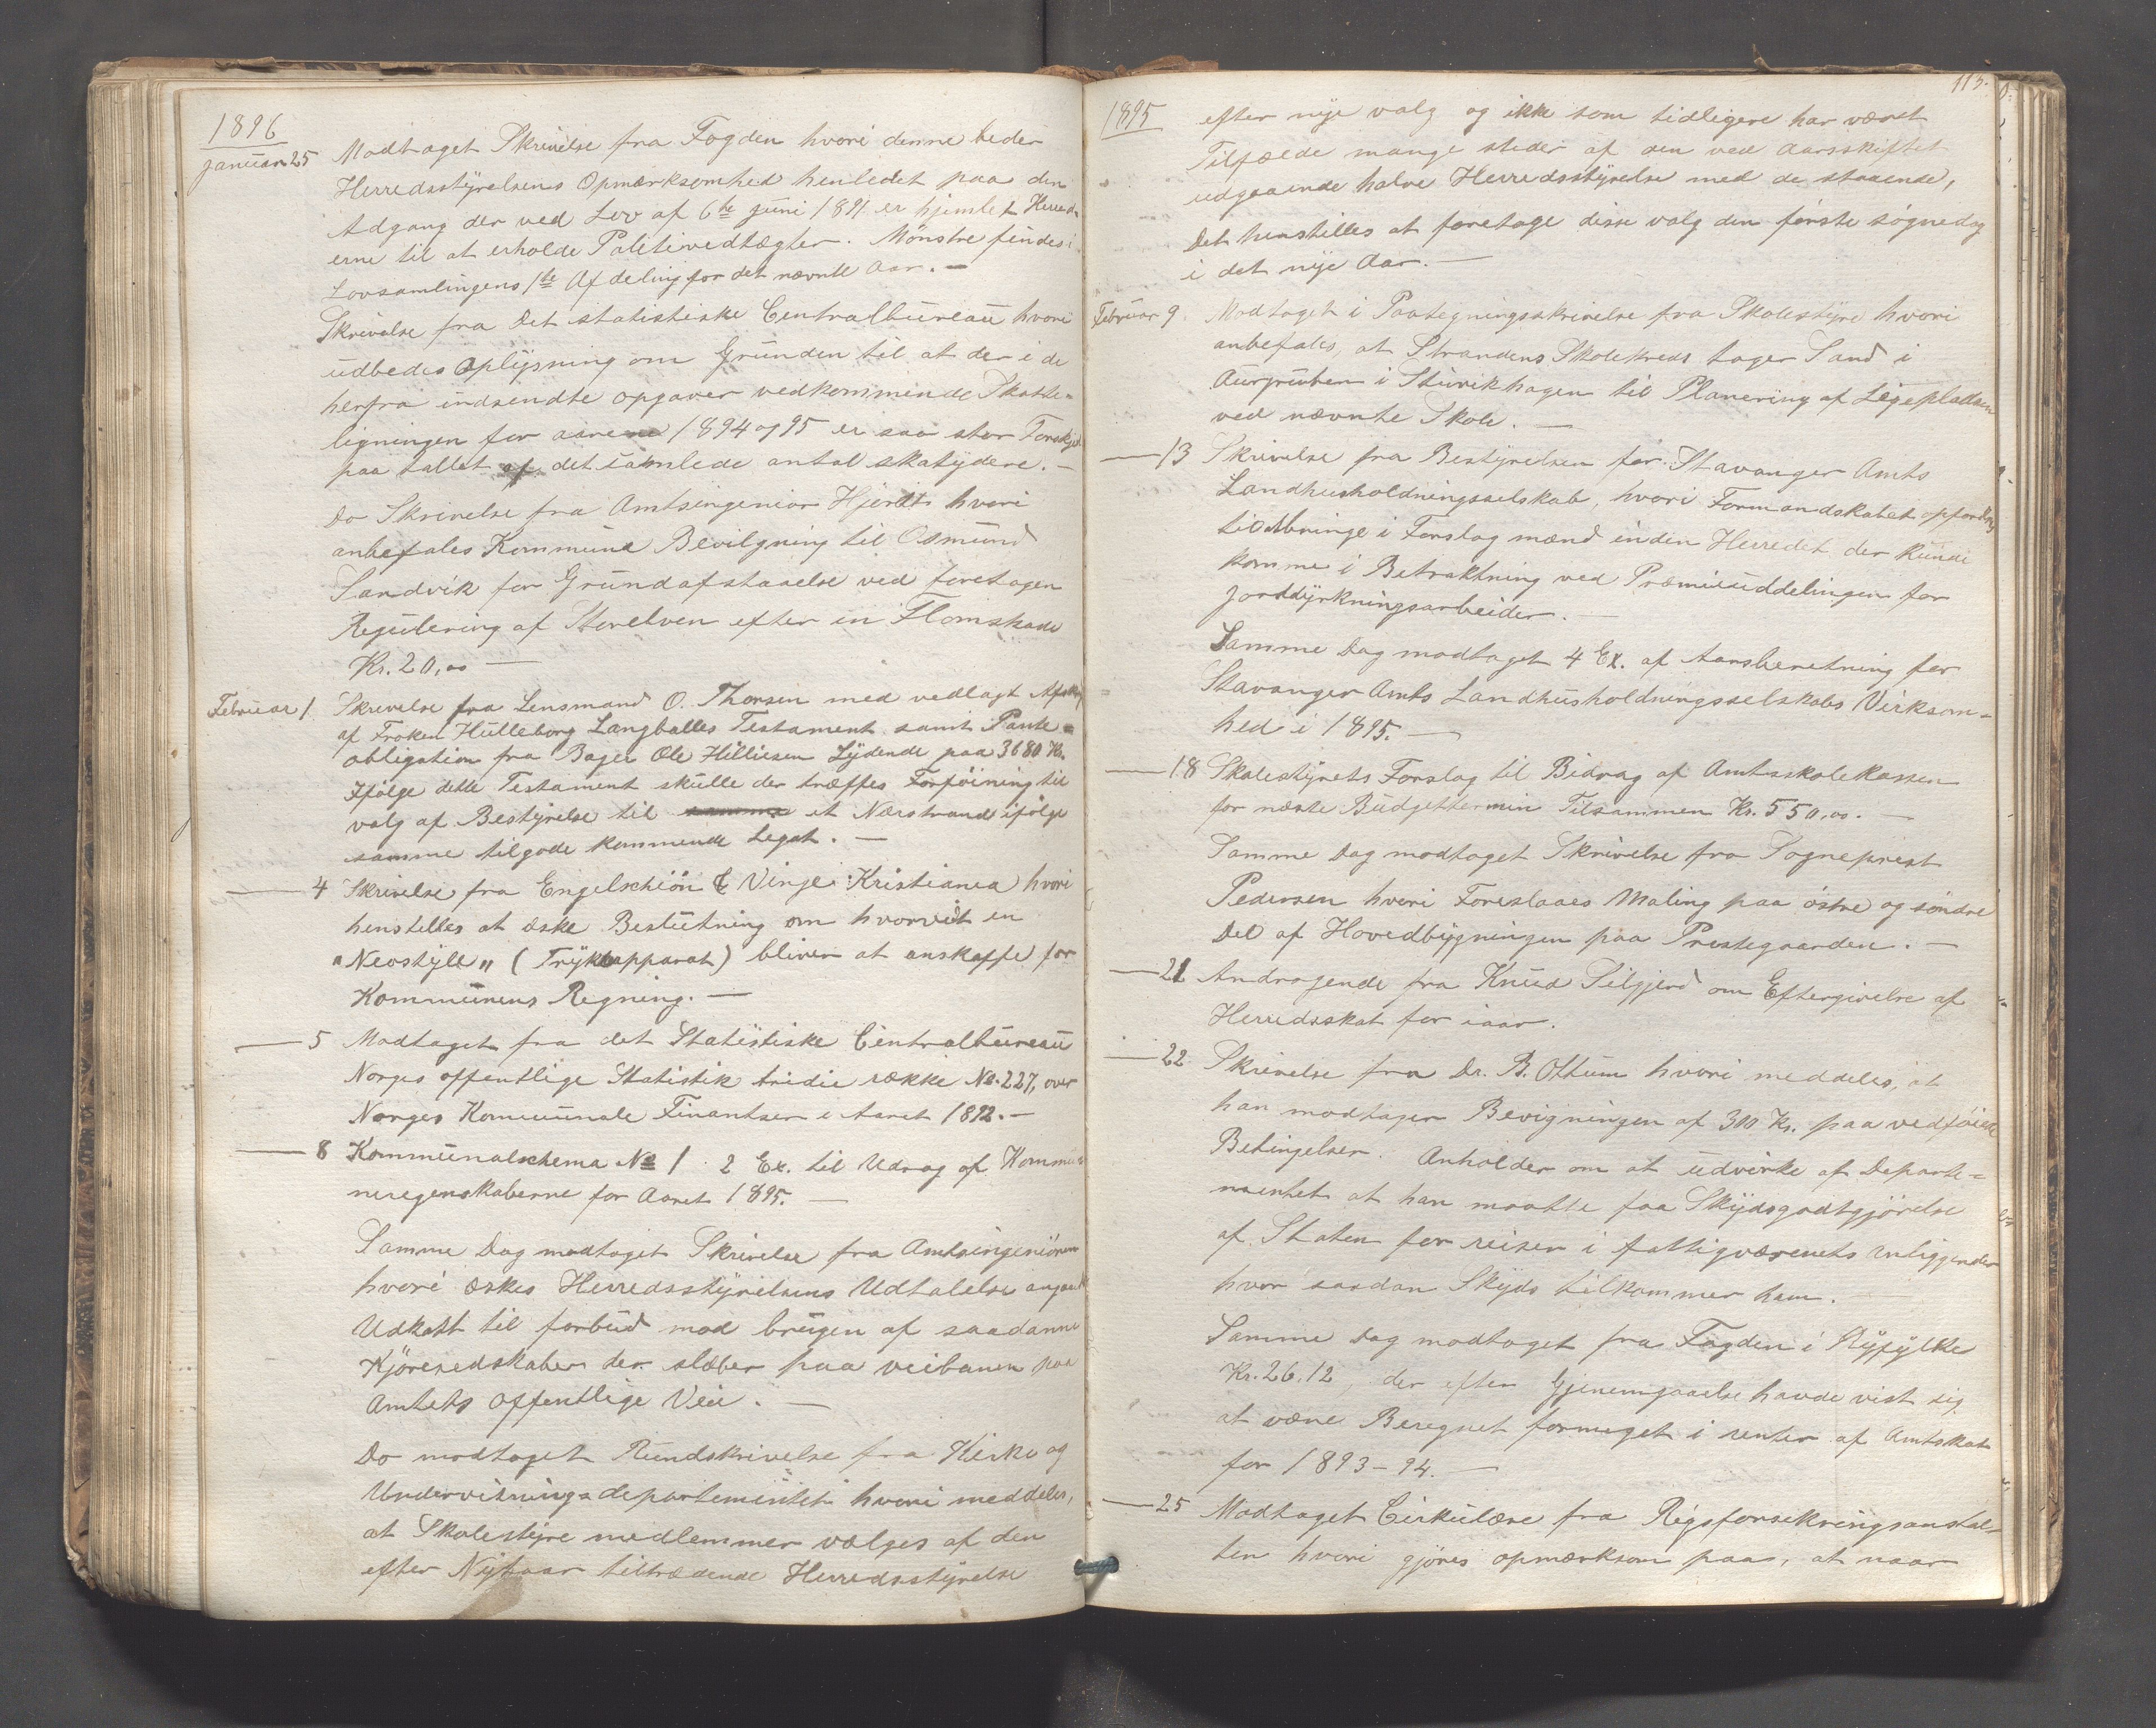 1896
Januar 25 Modtaget Skrivelse fra Fogden hvori denne beder
Herredsstyrelsens Opmærksomhed henledet paa den
Adgang der ved Lov af 6te Juni 1891 er hjemlet Herred-
erne til at erholde Politivedtægter. Mønstre findes i
Lovsamlingens 1ste Afdeling for det nævnte Aar. —
Skrivelse fra Det statistiske Centralbureau hvori
udbedes Oplysning om Grunden til at der i de
herfra indsendte opgaver vedkommende Skatte-
ligningen for aarene 1894 og 95 er saa stor Forskjel
paa tallet af det samlede antal skatydere. —
Do Skrivelse fra Amtsingeniør Hjerdt hvori
anbefales Kommune Bevilgning til Osmund
Sandvik for Grundafstaaelse ved foretagen
Regulering af Storelven efter en Flomskade
Kr. 20,00 —
Februar 1. Skrivelse fra Lensmand O. Thorsen med vedlagt Afskr
af Frøken Hulleborg Langballes Testament samt Pante-
obligation fra Bager Ole Hilliesen Lydende paa 3680 Kr.
Ifølge dette Testament skulle der træffes Forføining til
valg af Bestyrelse til et Nærstrand ifølge
samme tilgode kommende Legat. —
— 4 Skrivelse fra Engelschiön & Vinje Kristiania hvori
henstilles at æske Beslutning om hvorvidt en
"Neostyle" (Trykkapparat) bliver at anskaffe for
Kommunens Regning. —
— 5 Modtaget fra det Statistiske Centralbureau
Norges offentlige Statistik tridie række No. 227, over
Norges Kommunale Finantser i Aaret 1892. —
— 8 Kommunalschema No 1 2 Ex. til Udrag af Kommu-
neregenskaberne for Aaret 1895. —
Samme Dag modtaget Skrivelse fra Amtsingeniøren
hvori æskes Herredsstyrelsens Udtalelse angaae
Udkatt til forbud mod brugen af saadanne
Kjøreredskaber der slæber paa veibanen paa
Amtets offentlige Veie. —
Do modtaget Rundskrivelse fra Kirke og
Undervisningsdepartementet hvori meddeles,
at Skolestyremedlemmer vælges af den
efter Nytaar tiltrædende Herredsstyrelse
113.
1895
efter nye valg og ikke som tidligere har været
Tilfælde mange steder af den ved Aarsskiftet
udgaaende halve Herredsstyrelse med de staaende,
Det henstilles at foretage disse valg den første søgnedag
i det nye Aar. —
Februar 9. Modtaget i Paategningsskrivelse fra Skolestyre hvori
anbefales, at Strandens Skolekreds tager Sand i
Aurgruben i Stuvikhagen til Planering af Legepladsen
ved nævnte Skole. —
— 13 Skrivelse fra Bestyrelsen for Stavanger Amts
Landhusholdningsselskab, hvori Formandskabet opfordres
til at bringe i Forslag mænd inden Herredet der kunde
komme i Betraktning ved Præmieuddelingen for
Jorddyrkningsarbeider. —
Samme Dag modtaget 4 Ex. af Aarsberetning for
Stavanger Amts Landhusholdningsselskabs Virksom-
hed i 1895. —
— 18 Skolestyrets Forslag til Bidrag af Amtsskolekassen
for næste Budgettermin Tilsammen Kr. 550,00. —
Samme Dag modtaget Skrivelse fra Sogneprest
Pedersen hvori Foreslaaes Maling paa østre og søndre
Del af Hovedbygningen paa Prestegaarden. —
— 21 Andragende fra Knud Silgjerd om Eftergivelse af
Herredsskat for iaar.
— 22 Skrivelse fra Dr. B. Ottum hvori meddeles, at
han modtager Bevigningen af 300 Kr. paa vedføiede
Betingelser. Anholder om at udvirke af Departe-
mentet at han maatte faa Skydsgodtgjørelse
af Staten for reiser i fattigvæsenets Anliggender
hvor saadan Skyds tilkommer ham. —
Samme Dag modtaget fra Fogden i Ryfylke
Kr. 26.12, der efter Gjenemgaaelse havde vist sig
at være Beregnet formeget i renter af Amtskat
for 1893-94. —
— 25 Modtaget Cirkulære fra Rigsforsikringsanstal-
ten hvori gjøres opmærksom paa, at naar